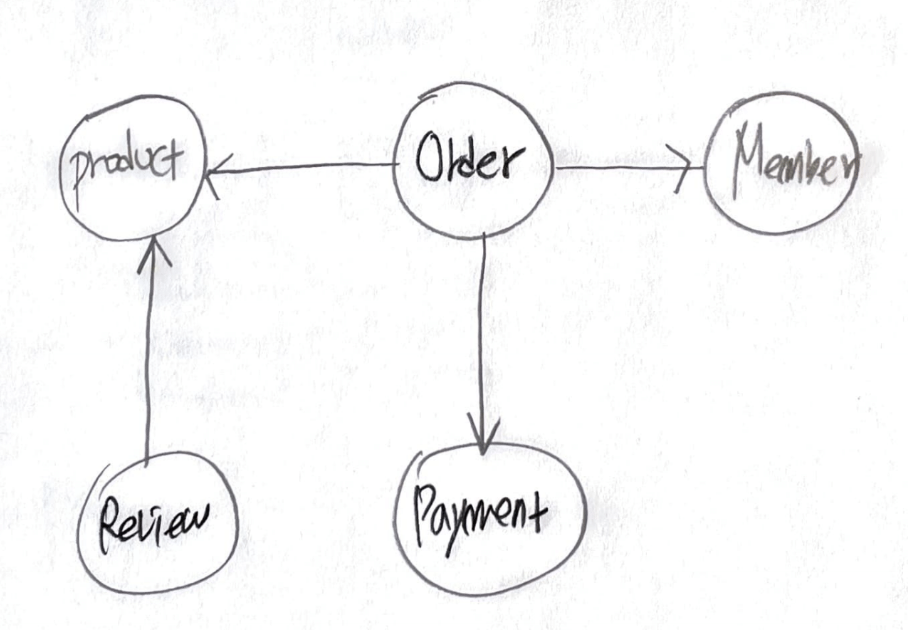 product
Order
Member
Review
Payment